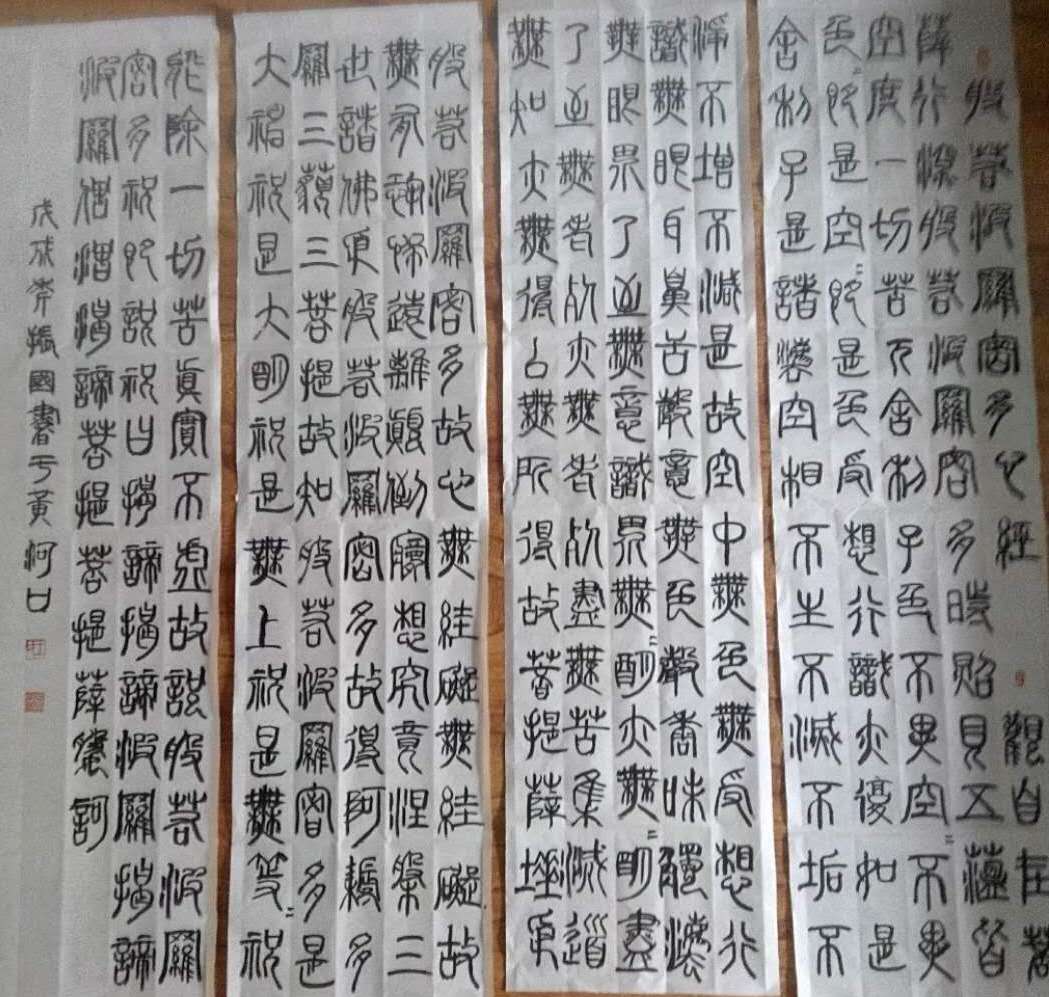 般若波羅密多心經 觀自在菩
薩行深般若波羅密多時照見五蘊皆
空度一切苦厄舍利子色不異空=不異
色=即是空=即是色受想行識亦復如是
舍利子是諸法空相不生不滅不垢不
淨不增不減是故空中無色無受想行
識無眼耳鼻舌身意無色聲香味觸法
無眼界乃至無意識界無=明亦無=明盡
乃至無老死亦無老死盡無苦集滅道
無知亦無得以無所得故菩提薩埵依
般若波羅密多故心無絓礙無絓礙故
無有恐怖遠離顛倒夢想究竟涅槃三
世諸佛依般若波羅密多故得阿耨多
羅三藐三菩提故知般若波羅密多是
大神祝是大明祝是無上祝是無等=祝
能除一切苦真實不虛故說般若波羅
密多祝即說祝曰揭諦揭諦波羅揭諦
波羅僧揭諦菩提菩提薩婆訶
戊戌振國書于黃河口